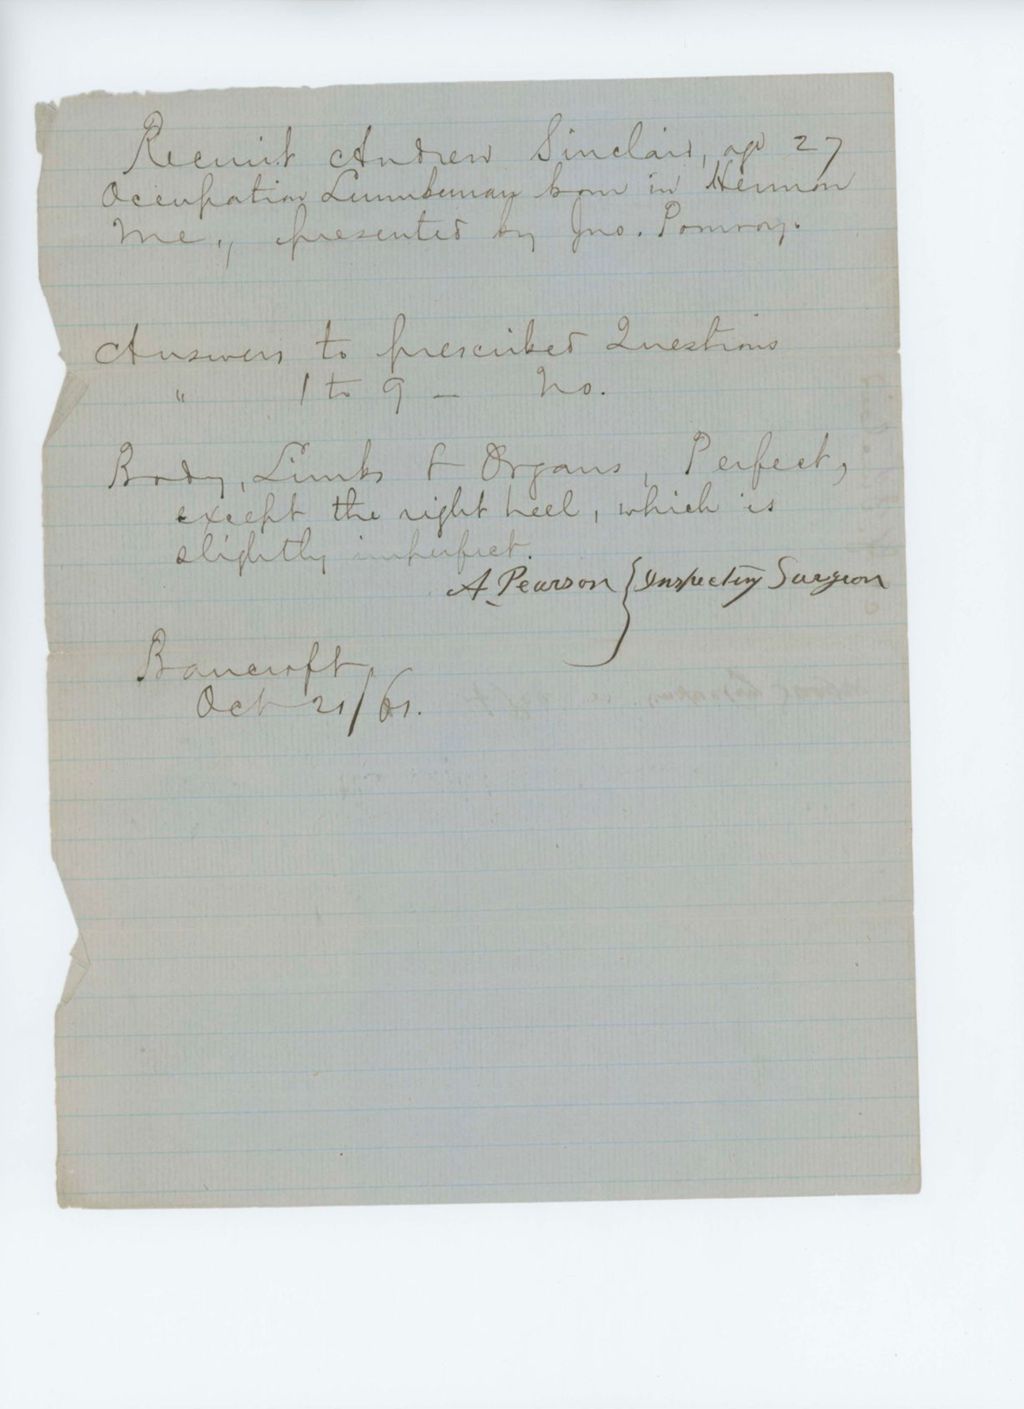 Recruit Andrew Sinclair, age 27
Occupation Lumberman born in Hermon
Me., presented by Jno. Pomroy.
Answers to prescribed Questions
" 1 to 9 — No.
Body, Limbs & Organs, Perfect,
except the right heel, which is
slightly imperfect.
A. Pearson } Inspecting Surgeon
Bancroft,
Oct 21/61.